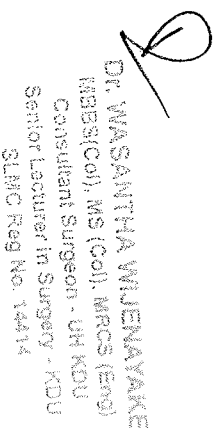 Dr. WASANTHA WIJENAYAKE
MBBS(Col), MS (Col), MRCS (Eng)
Consultant Surgeon - UH KDU
Senior Lecturer in Surgery - KDU
SLMC Reg No. 14414